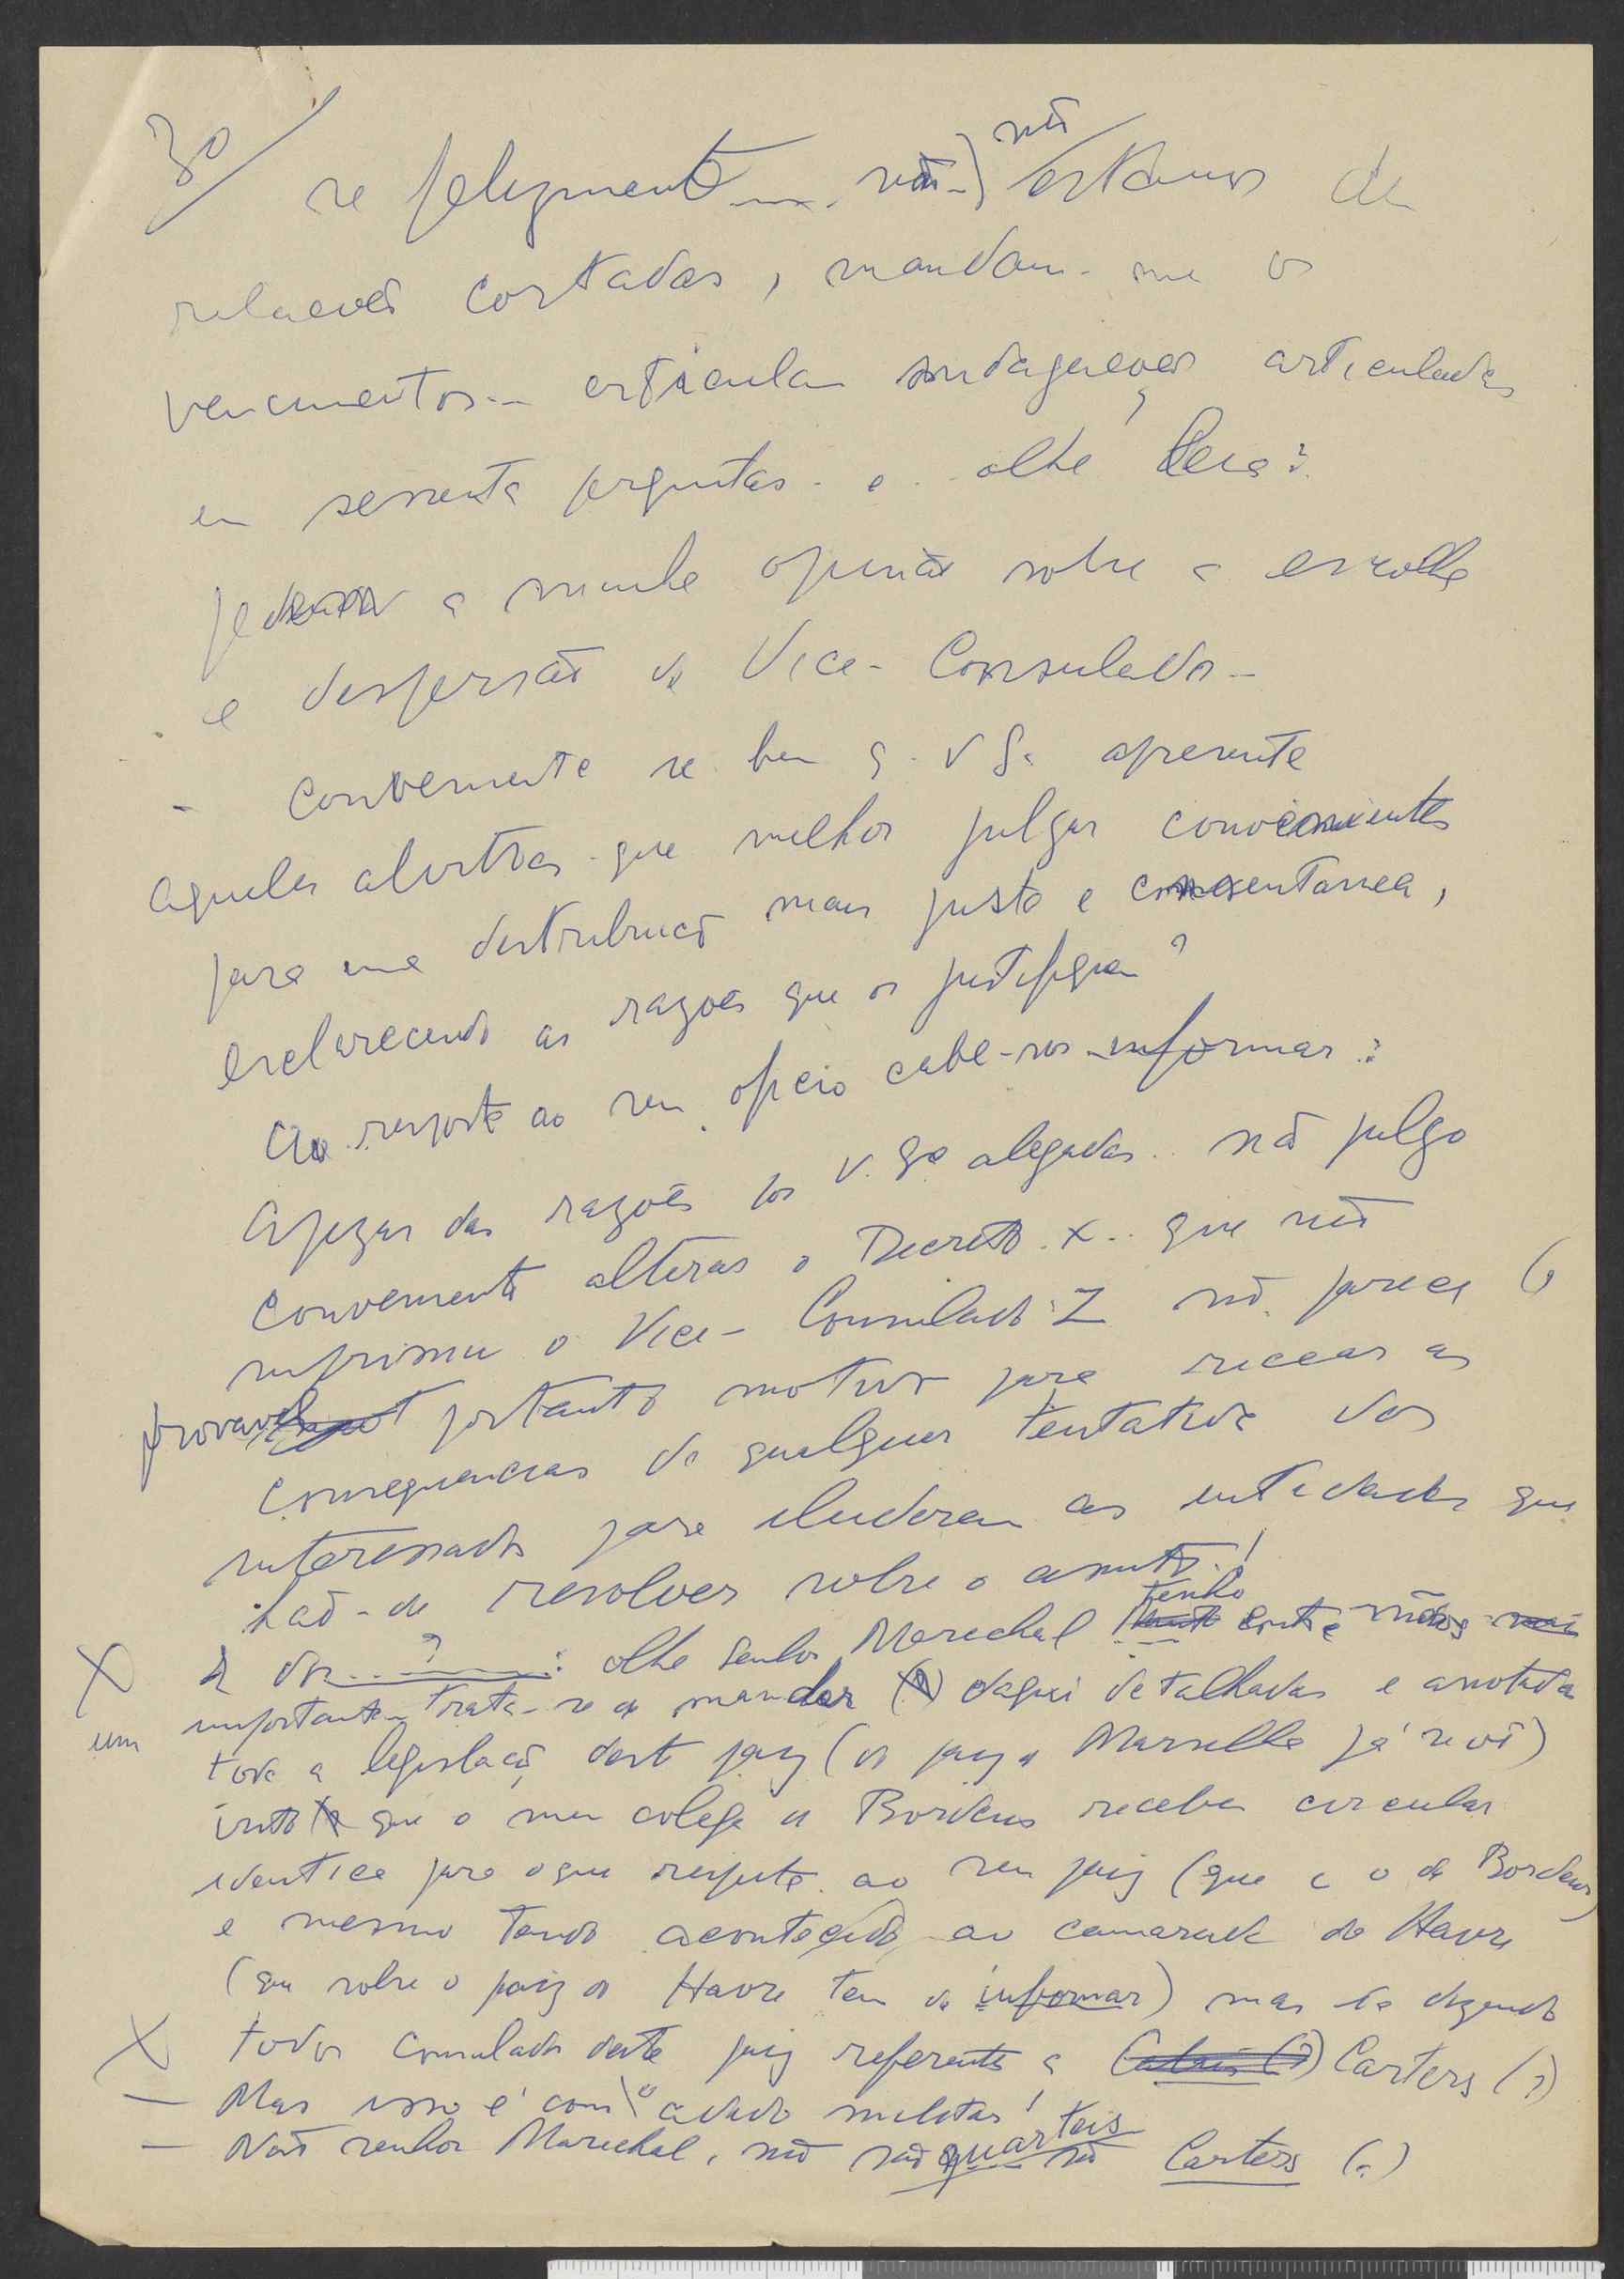 30/
se felizmente... não) não estamos de
relações cortadas, mandam-me os
vencimentos... articulam indagações articuladas
em sessenta perguntas. e.. olhe
pedem a minha opinião sobre a escolha
e dispersão de Vice-Consulados -
- Conveniente se bem q. V Sa apresente
aqueles alvitres que melhor julgar convenientes
para uma distribuição mais justa e consentanea,
esclarecendo as razões que os justifiquem?
resposta ao seu oficio cabe-nos informar:
Apezar das razões por V. Sa alegadas.. não julgo
conveniente alterar o Decreto X.. que não
suprimiu o Vice-Consulado Z não parece (
provavel portanto motivo para recear as
consequencias de qualquer tentativa dos
interessados para iludirem as entidades que
hão-de resolver sobre o assunto!
X ?: olhe Senhor Marechal tenho entre mãos
um importante trata-se de mandar daqui detalhadas e anotadas
toda a legislação deste paiz (o paiz de Marselha já se vê)
visto que o meu colega de Bordeus recebeu circular
identica para o que respeita ao seu paiz (que é o de Bordeus)
e mesmo tendo acontecido ao camarada do Havre
(que sobre o paiz do Havre tem de informar) mas ia dizendo
X todos Consulados deste paiz referente a Carters (?)
- Mas isso é com o adido militar!
- Não senhor Marechal, não são quarteis são Carters (?)